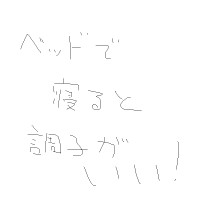 ベッドで
寝ると
調子が
いいい!